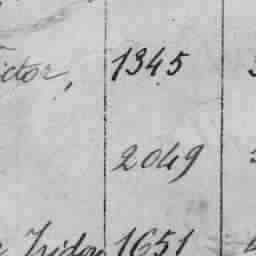 ictor, 1345
2049
Isidor 1651